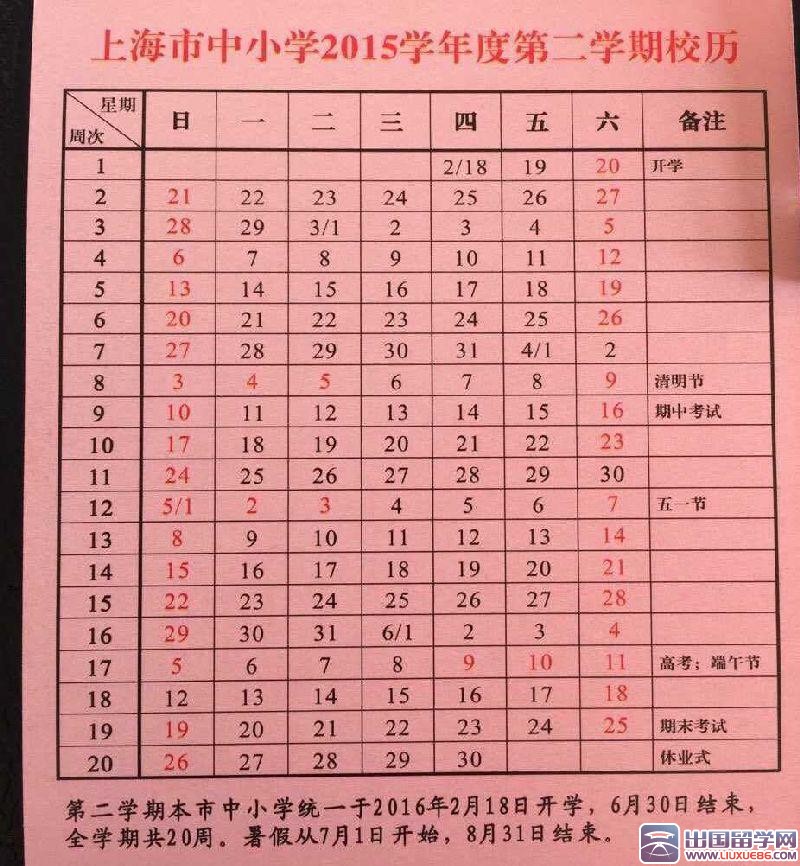 上海市中小学2015学年度第二学期校历
星期
周次 日 一 二 三 四 五 六 备注
1 2/18 19 20 开学
2 21 22 23 24 25 26 27
3 28 29 3/1 2 3 4 5
4 6 7 8 9 10 11 12
5 13 14 15 16 17 18 19
6 20 21 22 23 24 25 26
7 27 28 29 30 31 4/1 2
8 3 4 5 6 7 8 9 清明节
9 10 11 12 13 14 15 16 期中考试
10 17 18 19 20 21 22 23
11 24 25 26 27 28 29 30
12 5/1 2 3 4 5 6 7 五一节
13 8 9 10 11 12 13 14
14 15 16 17 18 19 20 21
15 22 23 24 25 26 27 28
16 29 30 31 6/1 2 3 4
17 5 6 7 8 9 10 11 高考；端午节
18 12 13 14 15 16 17 18
19 19 20 21 22 23 24 25 期末考试
20 26 27 28 29 30 休业式
第二学期本市中小学统一于2016年2月18日开学，6月30日结束，
全学期共20周。暑假从7月1日开始，8月31日结束。
出国留学网
WWW.LIUXUE86.COM